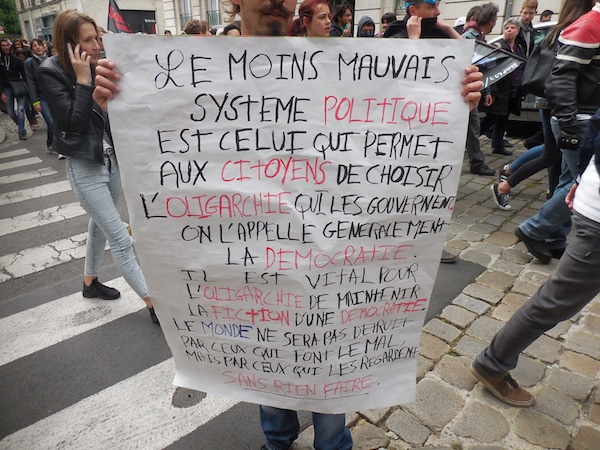 LE MOINS MAUVAIS
SYSTEME POLITIQUE
EST CELUI QUI PERMET
AUX CITOYENS DE CHOISIR
L'OLIGARCHIE QUI LES GOUVERNENT,
ON L'APPELLE GENERALEMENT
LA DEMOCRATIE.
IL EST VITAL POUR
L'OLIGARCHIE DE MAINTENIR
LA FICTION D'UNE DEMOCRATIE
LE MONDE NE SERA PAS DETRUIT
PAR CEUX QUI FONT LE MAL,
MAIS PAR CEUX QUI LES REGARDENT
SANS RIEN FAIRE.